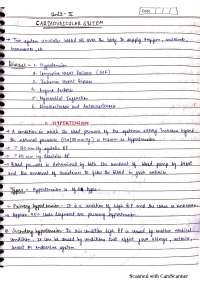 Unit - II
Date
CARDIOVASCULAR SYSTEM
This system circulates blood all over the body to supply oxygen, nutrients,
hormones, etc.
Diseases - 1. Hypertension
2. Congestive Heart Failure (CHF)
3. Ischemic Heart Disease
4. Angina Pectoris
5. Myocardial Infarction
6. Atherosclerosis and Arteriosclerosis
1. HYPERTENSION
A condition in which the blood pressure of the systemic artery increases beyond
the normal pressure (120/80 mmHg) is known as hypertension.
Blood pressure is determined by both the amount of blood pump by heart
and the amount of resistance to the blood in your arteries.
Types - Hypertension is of types
Primary hypertension - It is a condition of high B.P and the cause is unknown.
Approx 90% cases diagnosed are primary hypertension.
Secondary hypertension - In this condition high BP is caused by another medical
condition. It can be caused by conditions that affect your kidneys, arteries,
heart or endocrine system.
Scanned with CamScanner